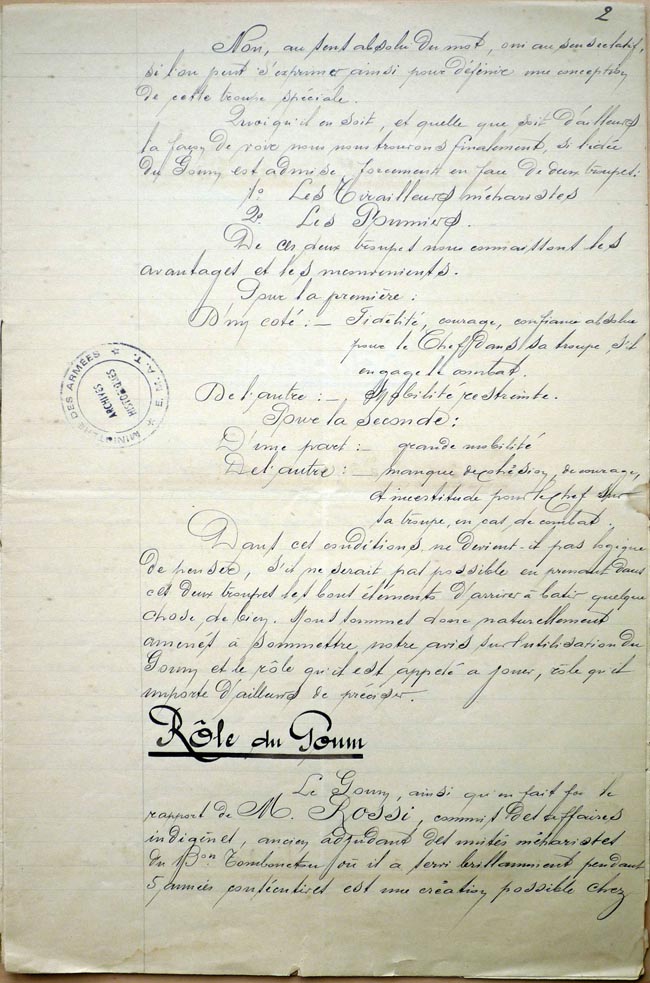 2
Non, au sens absolu du mot, oui au sens relatif,
si l'on peut s'exprimer ainsi pour définir une conception
de cette troupe spéciale.
Quoiqu'il en soit, et quelle que soit d'ailleurs
la façon de voir nous nous trouvons finalement, si l'idée
du Goum est admise, forcément en face de deux troupes:
1º Les Tirailleurs méharistes
2º Les Goumiers.
De ces deux troupes nous connaissons les
avantages et les inconvénients.
Pour la première :
D'un coté :– Fidélité, courage, confiance absolue
pour le Chef dans sa troupe, s'il
engage le combat.
De l'autre :– Mobilité restreinte.
Pour la seconde :
D'une part :– grande mobilité
De l'autre :– manque de cohésion, de courage,
et incertitude pour le Chef sur
sa troupe, en cas de combat.
Dans ces conditions, ne devient-il pas logique
de penser, s'il ne serait pas possible en prenant dans
ces deux troupes les bons éléments d'arriver à batir quelque
chose de bien. Nous sommes donc naturellement
amenés à soumettre notre avis sur l'utilisation du
Goum et le rôle qu'il est appelé a jouer, rôle qu'il
importe d'ailleurs de préciser.
Rôle du Goum
Le Goum, ainsi qu'en fait foi le
rapport de M. Rossi, commis des affaires
indigènes, ancien adjudant des unités méharistes
du Bon Tombouctou où il a servi brillamment pendant
5 années consécutives est une création possible chez
MINISTÈRE DES ARMÉES * E. M. A. T. *
ARCHIVES
HISTORIQUES